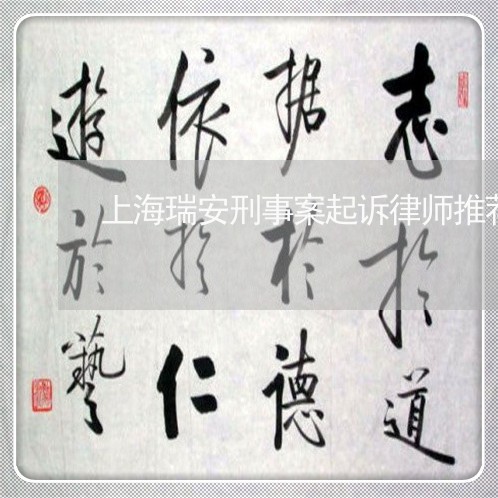 志於道
据於德
依於仁
遊於藝
上海瑞安刑事案起诉律师推荐